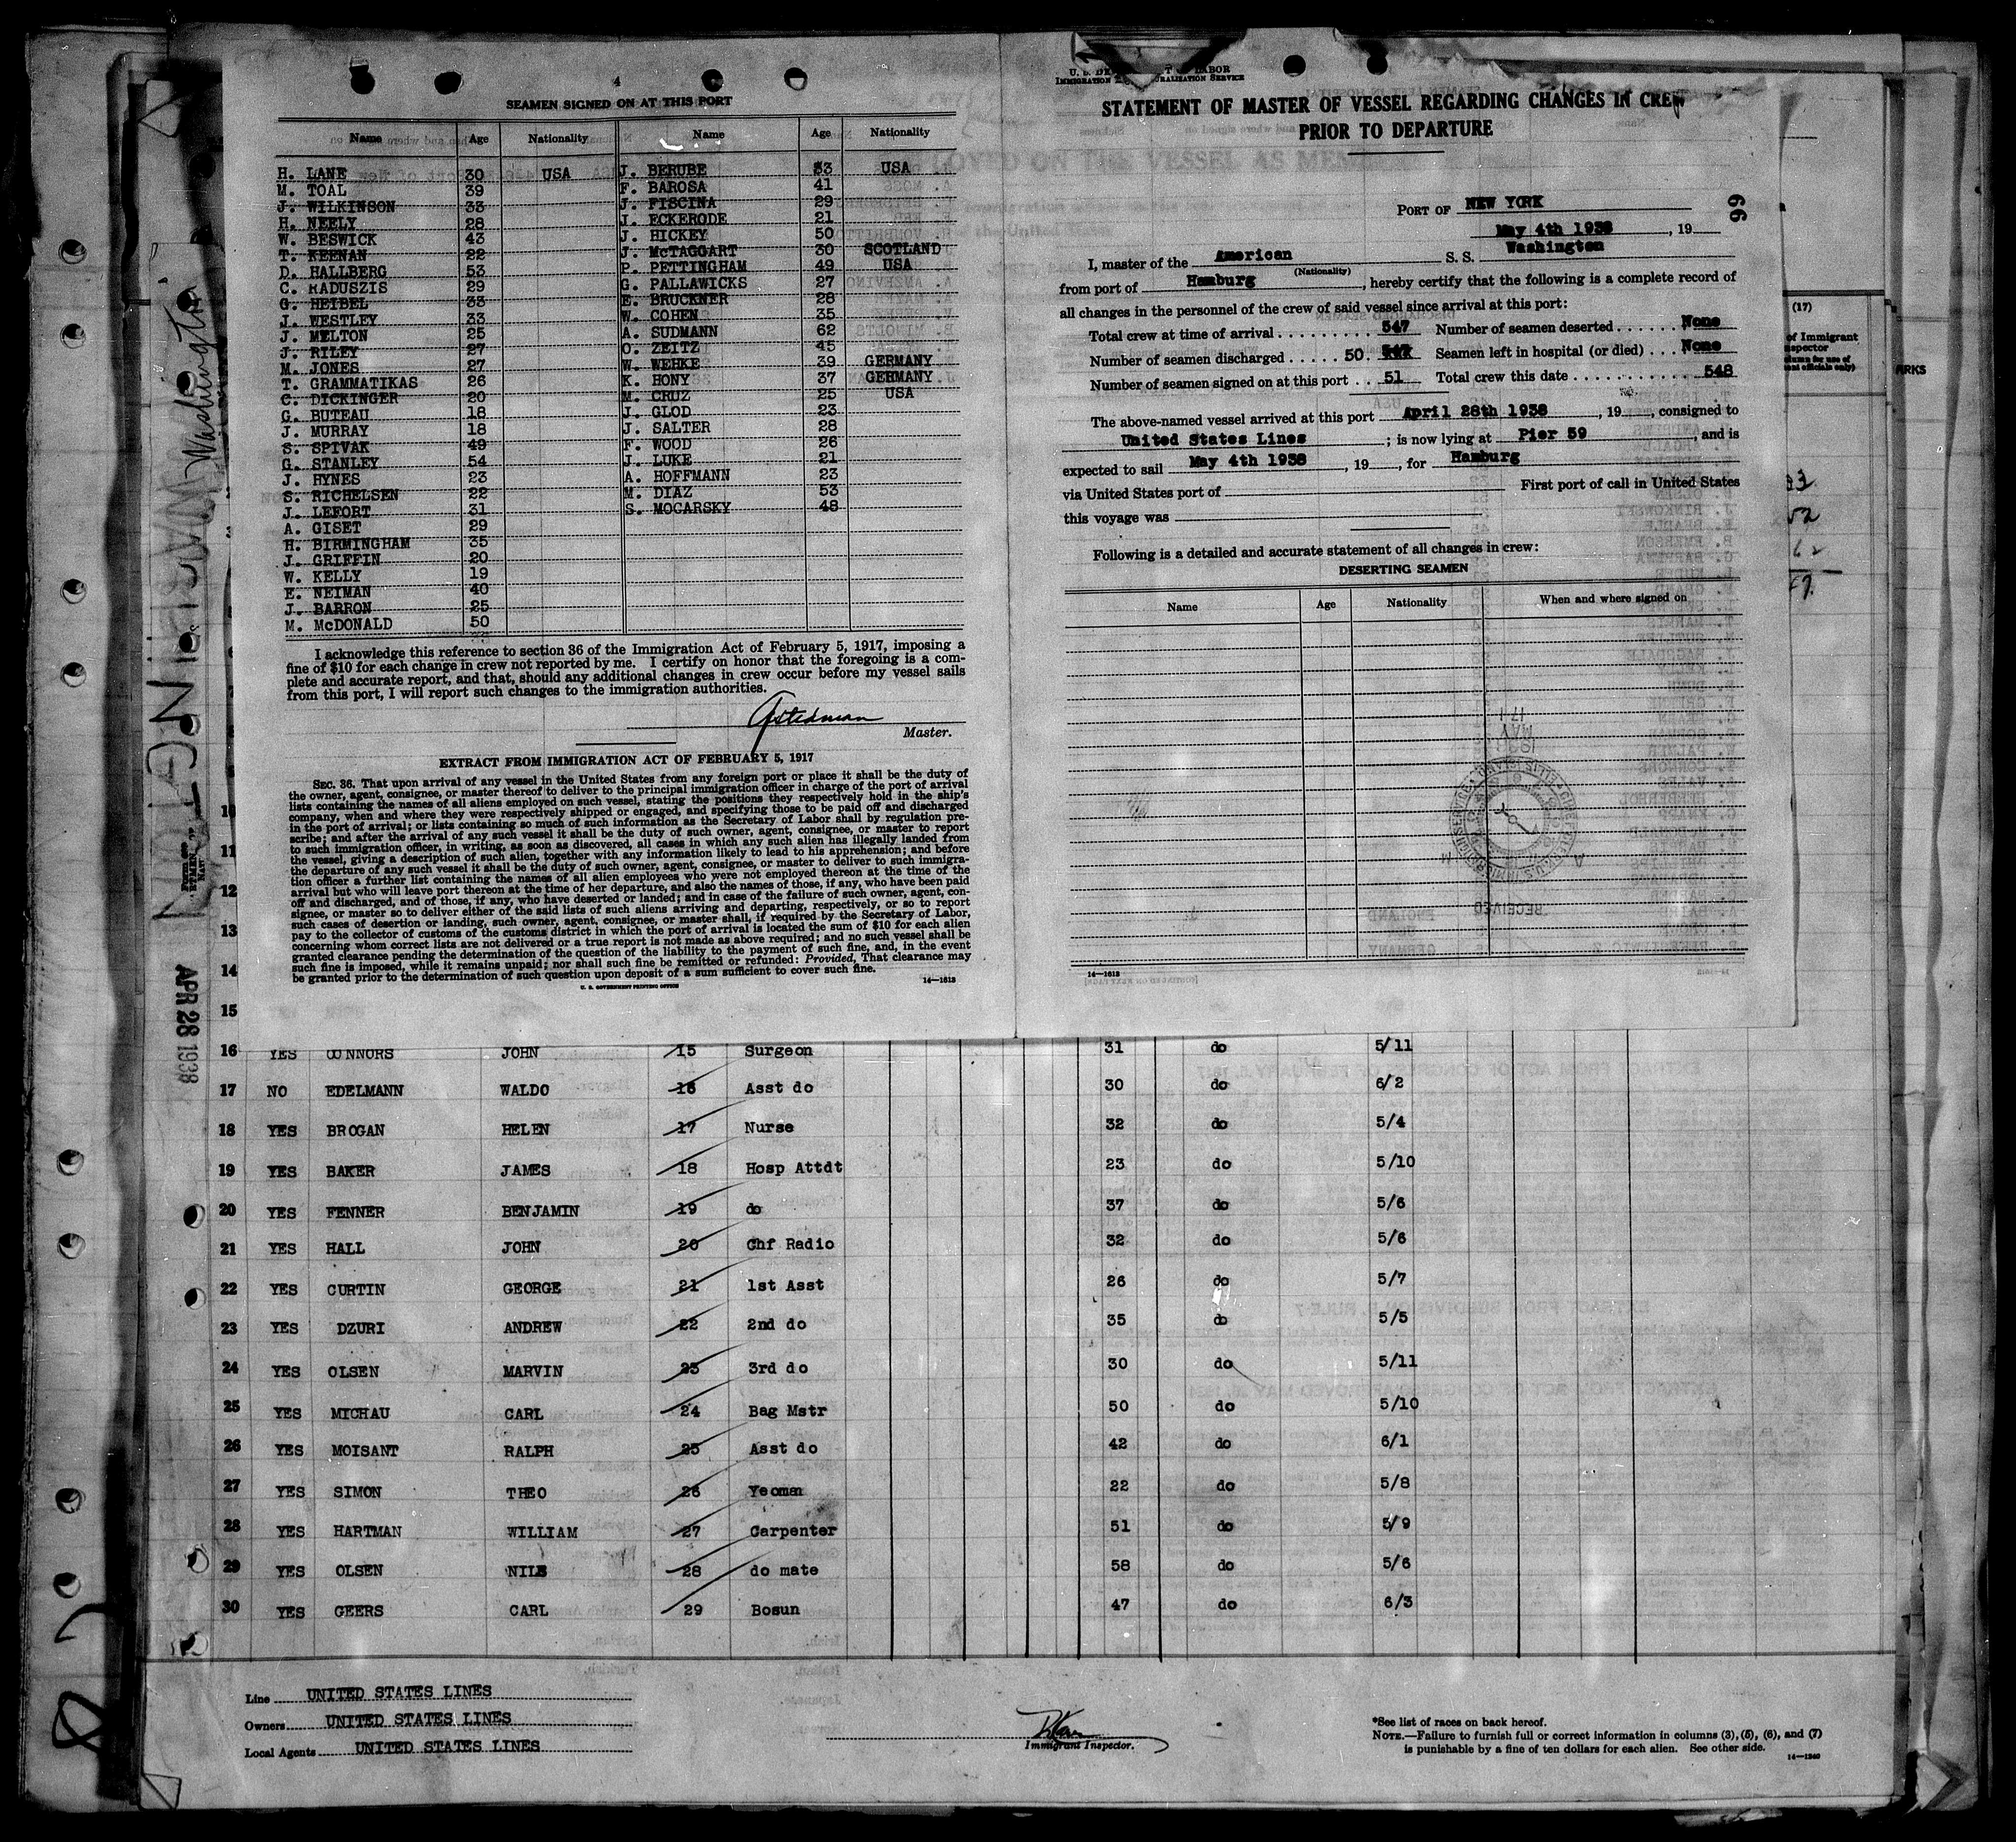 4
SEAMEN SIGNED ON AT THIS PORT
Name Age Nationality Name Age Nationality
H. LANE 30 USA J. BERUBE 53 USA
M. TOAL 39 F. BAROSA 41
J. WILKINSON 33 J. FISCINA 29
H. NEELY 28 J. ECKERODE 21
W. BESWICK 43 J. HICKEY 50
T. KEENAN 22 J. McTAGGART 30 SCOTLAND
D. HALLBERG 53 P. PETTINGHAM 49 USA
C. RADUSZIS 29 G. PALLAWICKS 27
G. HEIBEL 33 E. BRUCKNER 28
J. WESTLEY 33 W. COHEN 35
J. MELTON 25 A. SUDMANN 62
J. RILEY 27 O. ZEITZ 45
M. JONES 27 W. WEHKE 39 GERMANY
T. GRAMMATIKAS 26 K. HONY 37 GERMANY
C. DICKINGER 20 M. CRUZ 25 USA
G. BUTEAU 18 J. GLOD 23
J. MURRAY 18 J. SALTER 28
S. SPIVAK 49 F. WOOD 26
G. STANLEY 54 J. LUKE 21
J. HYNES 23 A. HOFFMANN 23
S. RICHELSEN 22 M. DIAZ 53
J. LEFORT 31 S. MOCARSKY 48
A. GISET 29
H. BIRMINGHAM 35
J. GRIFFIN 20
W. KELLY 19
E. NEIMAN 40
J. BARRON 25
M. McDONALD 50
I acknowledge this reference to section 36 of the Immigration Act of February 5, 1917, imposing a
fine of $10 for each change in crew not reported by me. I certify on honor that the foregoing is a com-
plete and accurate report, and that, should any additional changes in crew occur before my vessel sails
from this port, I will report such changes to the immigration authorities.
Master.
EXTRACT FROM IMMIGRATION ACT OF FEBRUARY 5, 1917
SEC. 36. That upon arrival of any vessel in the United States from any foreign port or place it shall be the duty of
the owner, agent, consignee, or master thereof to deliver to the principal immigration officer in charge of the port of arrival
lists containing the names of all aliens employed on such vessel, stating the positions they respectively hold in the ship's
company, when and where they were respectively shipped or engaged, and specifying those to be paid off and discharged
in the port of arrival; or lists containing so much of such information as the Secretary of Labor shall by regulation pre-
scribe; and after the arrival of any such vessel it shall be the duty of such owner, agent, consignee, or master to report
to such immigration officer, in writing, as soon as discovered, all cases in which any such alien has illegally landed from
the vessel, giving a description of such alien, together with any information likely to lead to his apprehension; and before
the departure of any such vessel it shall be the duty of such owner, agent, consignee, or master to deliver to such immigra-
tion officer a further list containing the names of all alien employees who were not employed thereon at the time of the
arrival but who will leave port thereon at the time of her departure, and also the names of those, if any, who have been paid
off and discharged, and of those, if any, who have deserted or landed; and in case of the failure of such owner, agent, con-
signee, or master so to deliver either of the said lists of such aliens arriving and departing, respectively, or so to report
such cases of desertion or landing, such owner, agent, consignee, or master shall, if required by the Secretary of Labor,
pay to the collector of customs of the customs district in which the port of arrival is located the sum of $10 for each alien
concerning whom correct lists are not delivered or a true report is not made as above required; and no such vessel shall be
granted clearance pending the determination of the question of the liability to the payment of such fine, and, in the event
such fine is imposed, while it remains unpaid; nor shall such fine be remitted or refunded: Provided, That clearance may
be granted prior to the determination of such question upon deposit of a sum sufficient to cover such fine.
U. S. GOVERNMENT PRINTING OFFICE 14—1613
STATEMENT OF MASTER OF VESSEL REGARDING CHANGES IN CREW
PRIOR TO DEPARTURE
66
PORT OF NEW YORK
May 4th 1938, 19
I, master of the American S. S. Washington
(Nationality)
from port of Hamburg, hereby certify that the following is a complete record of
all changes in the personnel of the crew of said vessel since arrival at this port:
Total crew at time of arrival 547 Number of seamen deserted None
Number of seamen discharged 50 Seamen left in hospital (or died) None
Number of seamen signed on at this port 51 Total crew this date 548
The above-named vessel arrived at this port April 28th 1938, 19, consigned to
United States Lines; is now lying at Pier 59, and is
expected to sail May 4th 1938, 19, for Hamburg
via United States port of First port of call in United States
this voyage was
Following is a detailed and accurate statement of all changes in crew:
DESERTING SEAMEN
Name Age Nationality When and where signed on
14—1613
(17)
of Immigrant
ARKS
Washington
WASHINGTON
APR 28 1938
10
11
12
13
14
15
16 YES CONNORS JOHN 15 Surgeon 31 do 5/11
17 NO EDELMANN WALDO 16 Asst do 30 do 6/2
18 YES BROGAN HELEN 17 Nurse 32 do 5/4
19 YES BAKER JAMES 18 Hosp Attdt 23 do 5/10
20 YES FENNER BENJAMIN 19 do 37 do 5/6
21 YES HALL JOHN 20 Chf Radio 32 do 5/6
22 YES CURTIN GEORGE 21 1st Asst 26 do 5/7
23 YES DZURI ANDREW 22 2nd do 35 do 5/5
24 YES OLSEN MARVIN 23 3rd do 30 do 5/11
25 YES MICHAU CARL 24 Bag Mstr 50 do 5/10
26 YES MOISANT RALPH 25 Asst do 42 do 6/1
27 YES SIMON THEO 26 Yeoman 22 do 5/8
28 YES HARTMAN WILLIAM 27 Carpenter 51 do 5/9
29 YES OLSEN NILS 28 do mate 58 do 5/6
30 YES GEERS CARL 29 Bosun 47 do 6/3
Line UNITED STATES LINES
Owners UNITED STATES LINES
Local Agents UNITED STATES LINES
Immigrant Inspector.
*See list of races on back hereof.
NOTE.—Failure to furnish full or correct information in columns (3), (5), (6), and (7)
is punishable by a fine of ten dollars for each alien. See other side.
14—1240